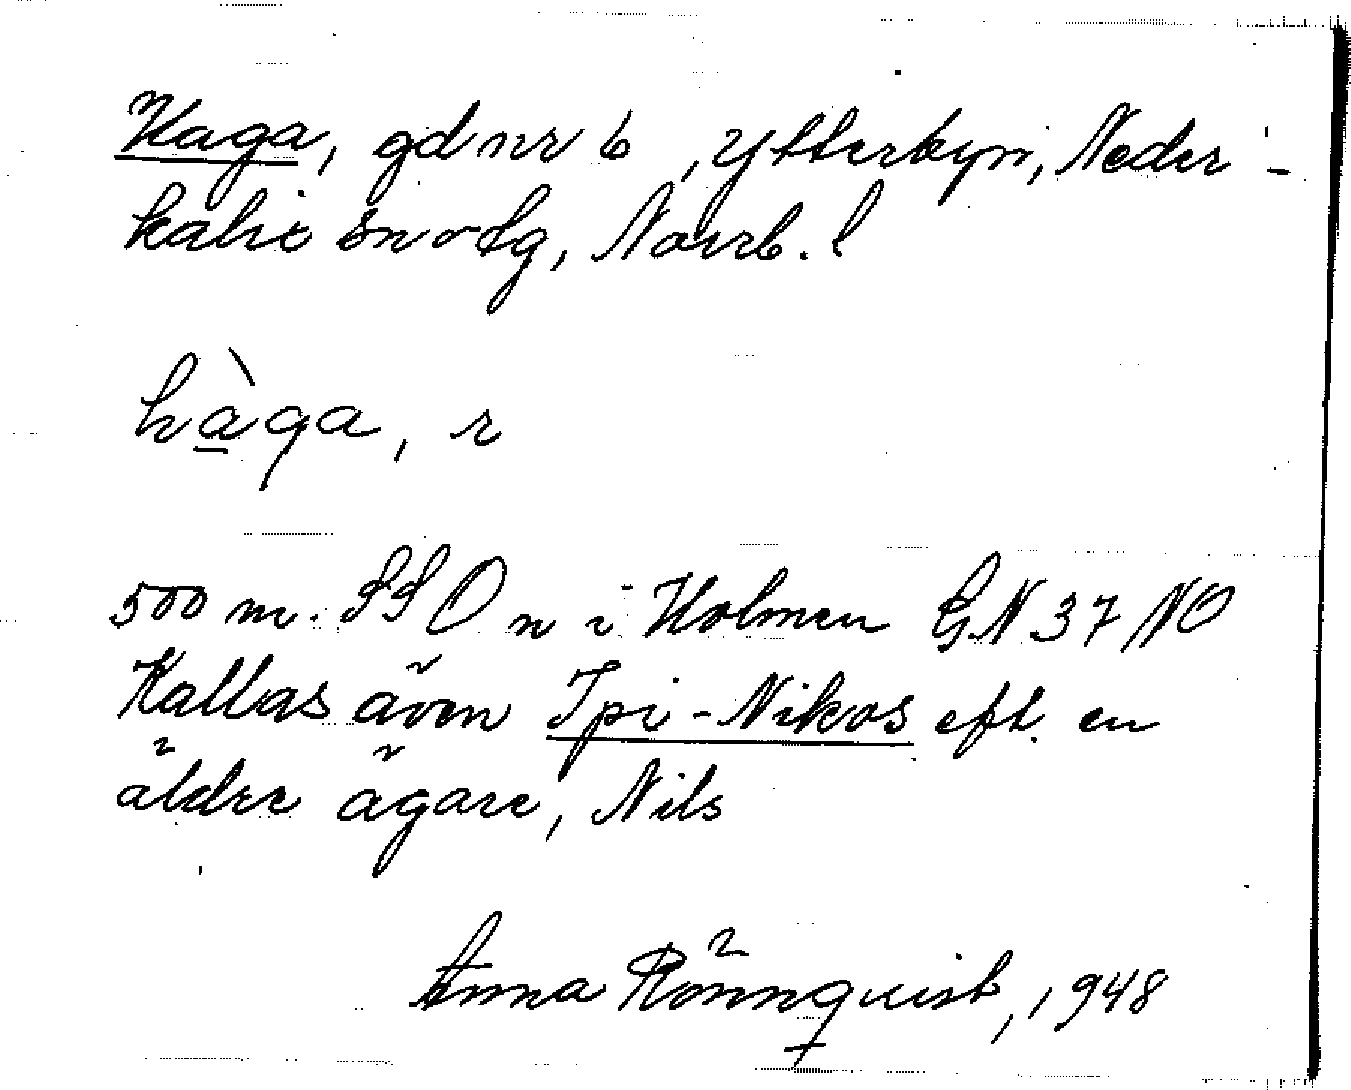 Haga, gd nr 6, Ytterbyn, Neder-
kalix sn o tg, Norrb. l
hàga, r
500 m. SSO n i Holmen GN 37 NO
Kallas även Ipi-Nikos eft. en
äldre ägare, Nils
Anna Rönnquist, 1948